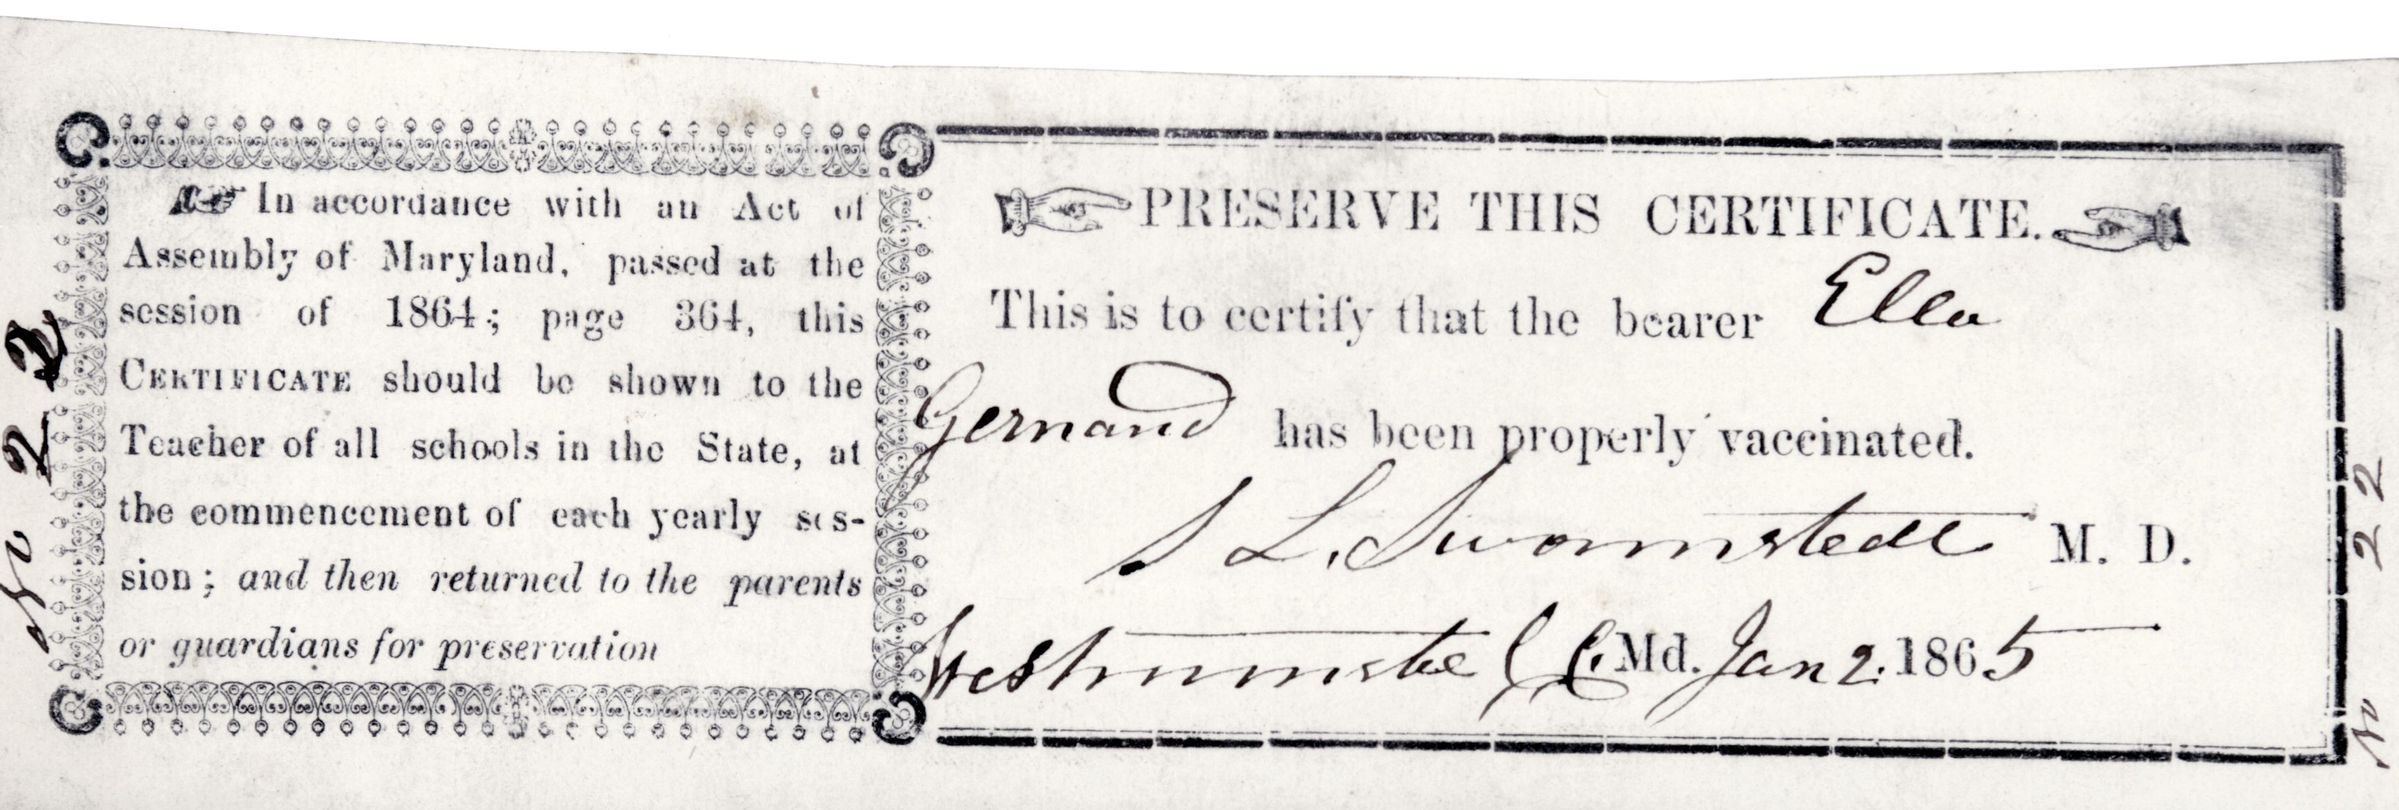 In accordance with an Act of
Assembly of Maryland, passed at the
session of 1864; page 364, this
CERTIFICATE should be shown to the
Teacher of all schools in the State, at
the commencement of each yearly ses-
sion; and then returned to the parents
or guardians for preservation
PRESERVE THIS CERTIFICATE.
This is to certify that the bearer Ella
Gernand has been properly vaccinated.
S L. Swormstedt M. D.
Westminster C C. Md. Jan 2. 1865
N 22
N 22